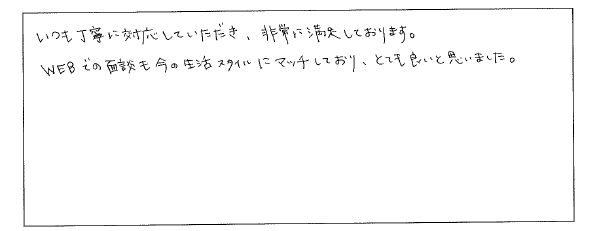 いつも丁寧に対応していただき、非常に満足しております。
WEBでの面談も今の生活スタイルにマッチしており、とても良いと思いました。